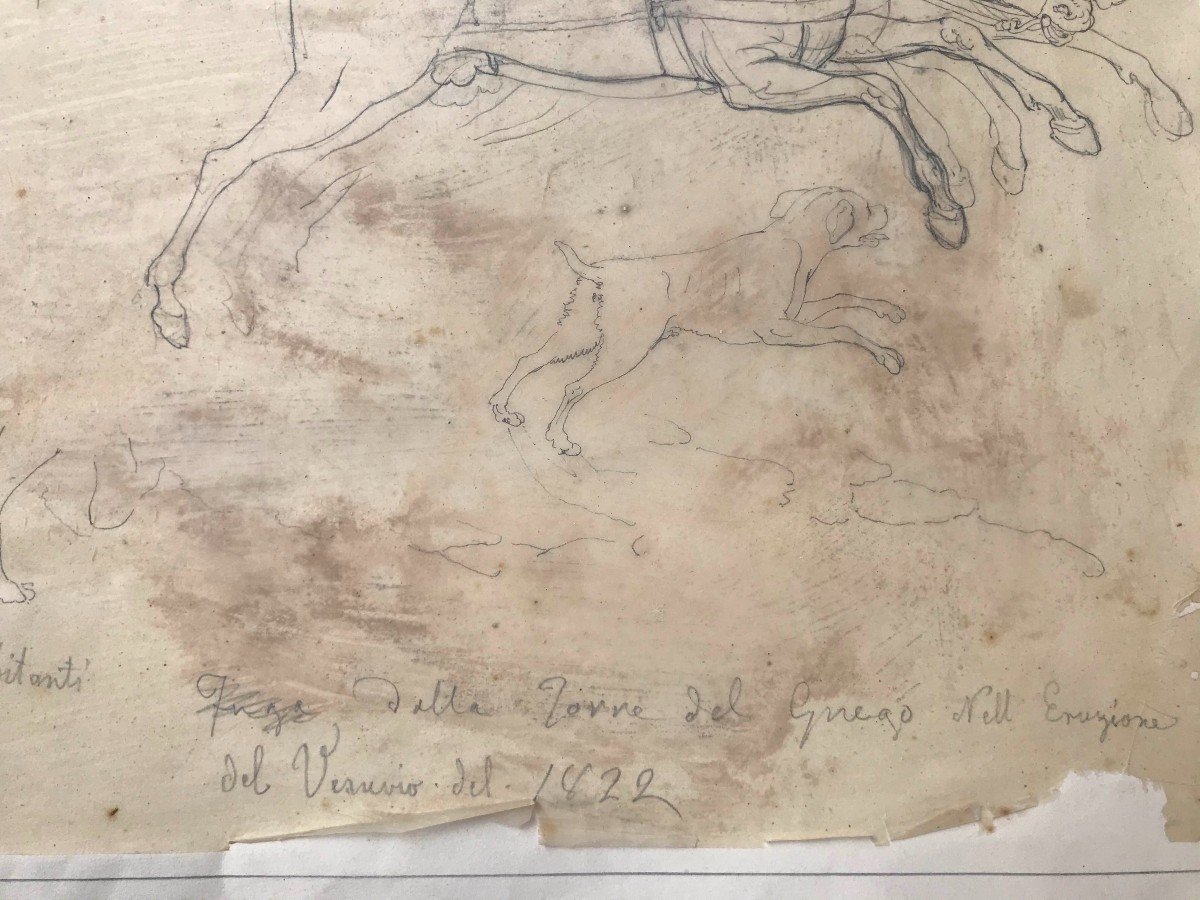 bitanti
Fuga Della Torre del Grego Nell Eruzione
del Vesuvio del. 1822